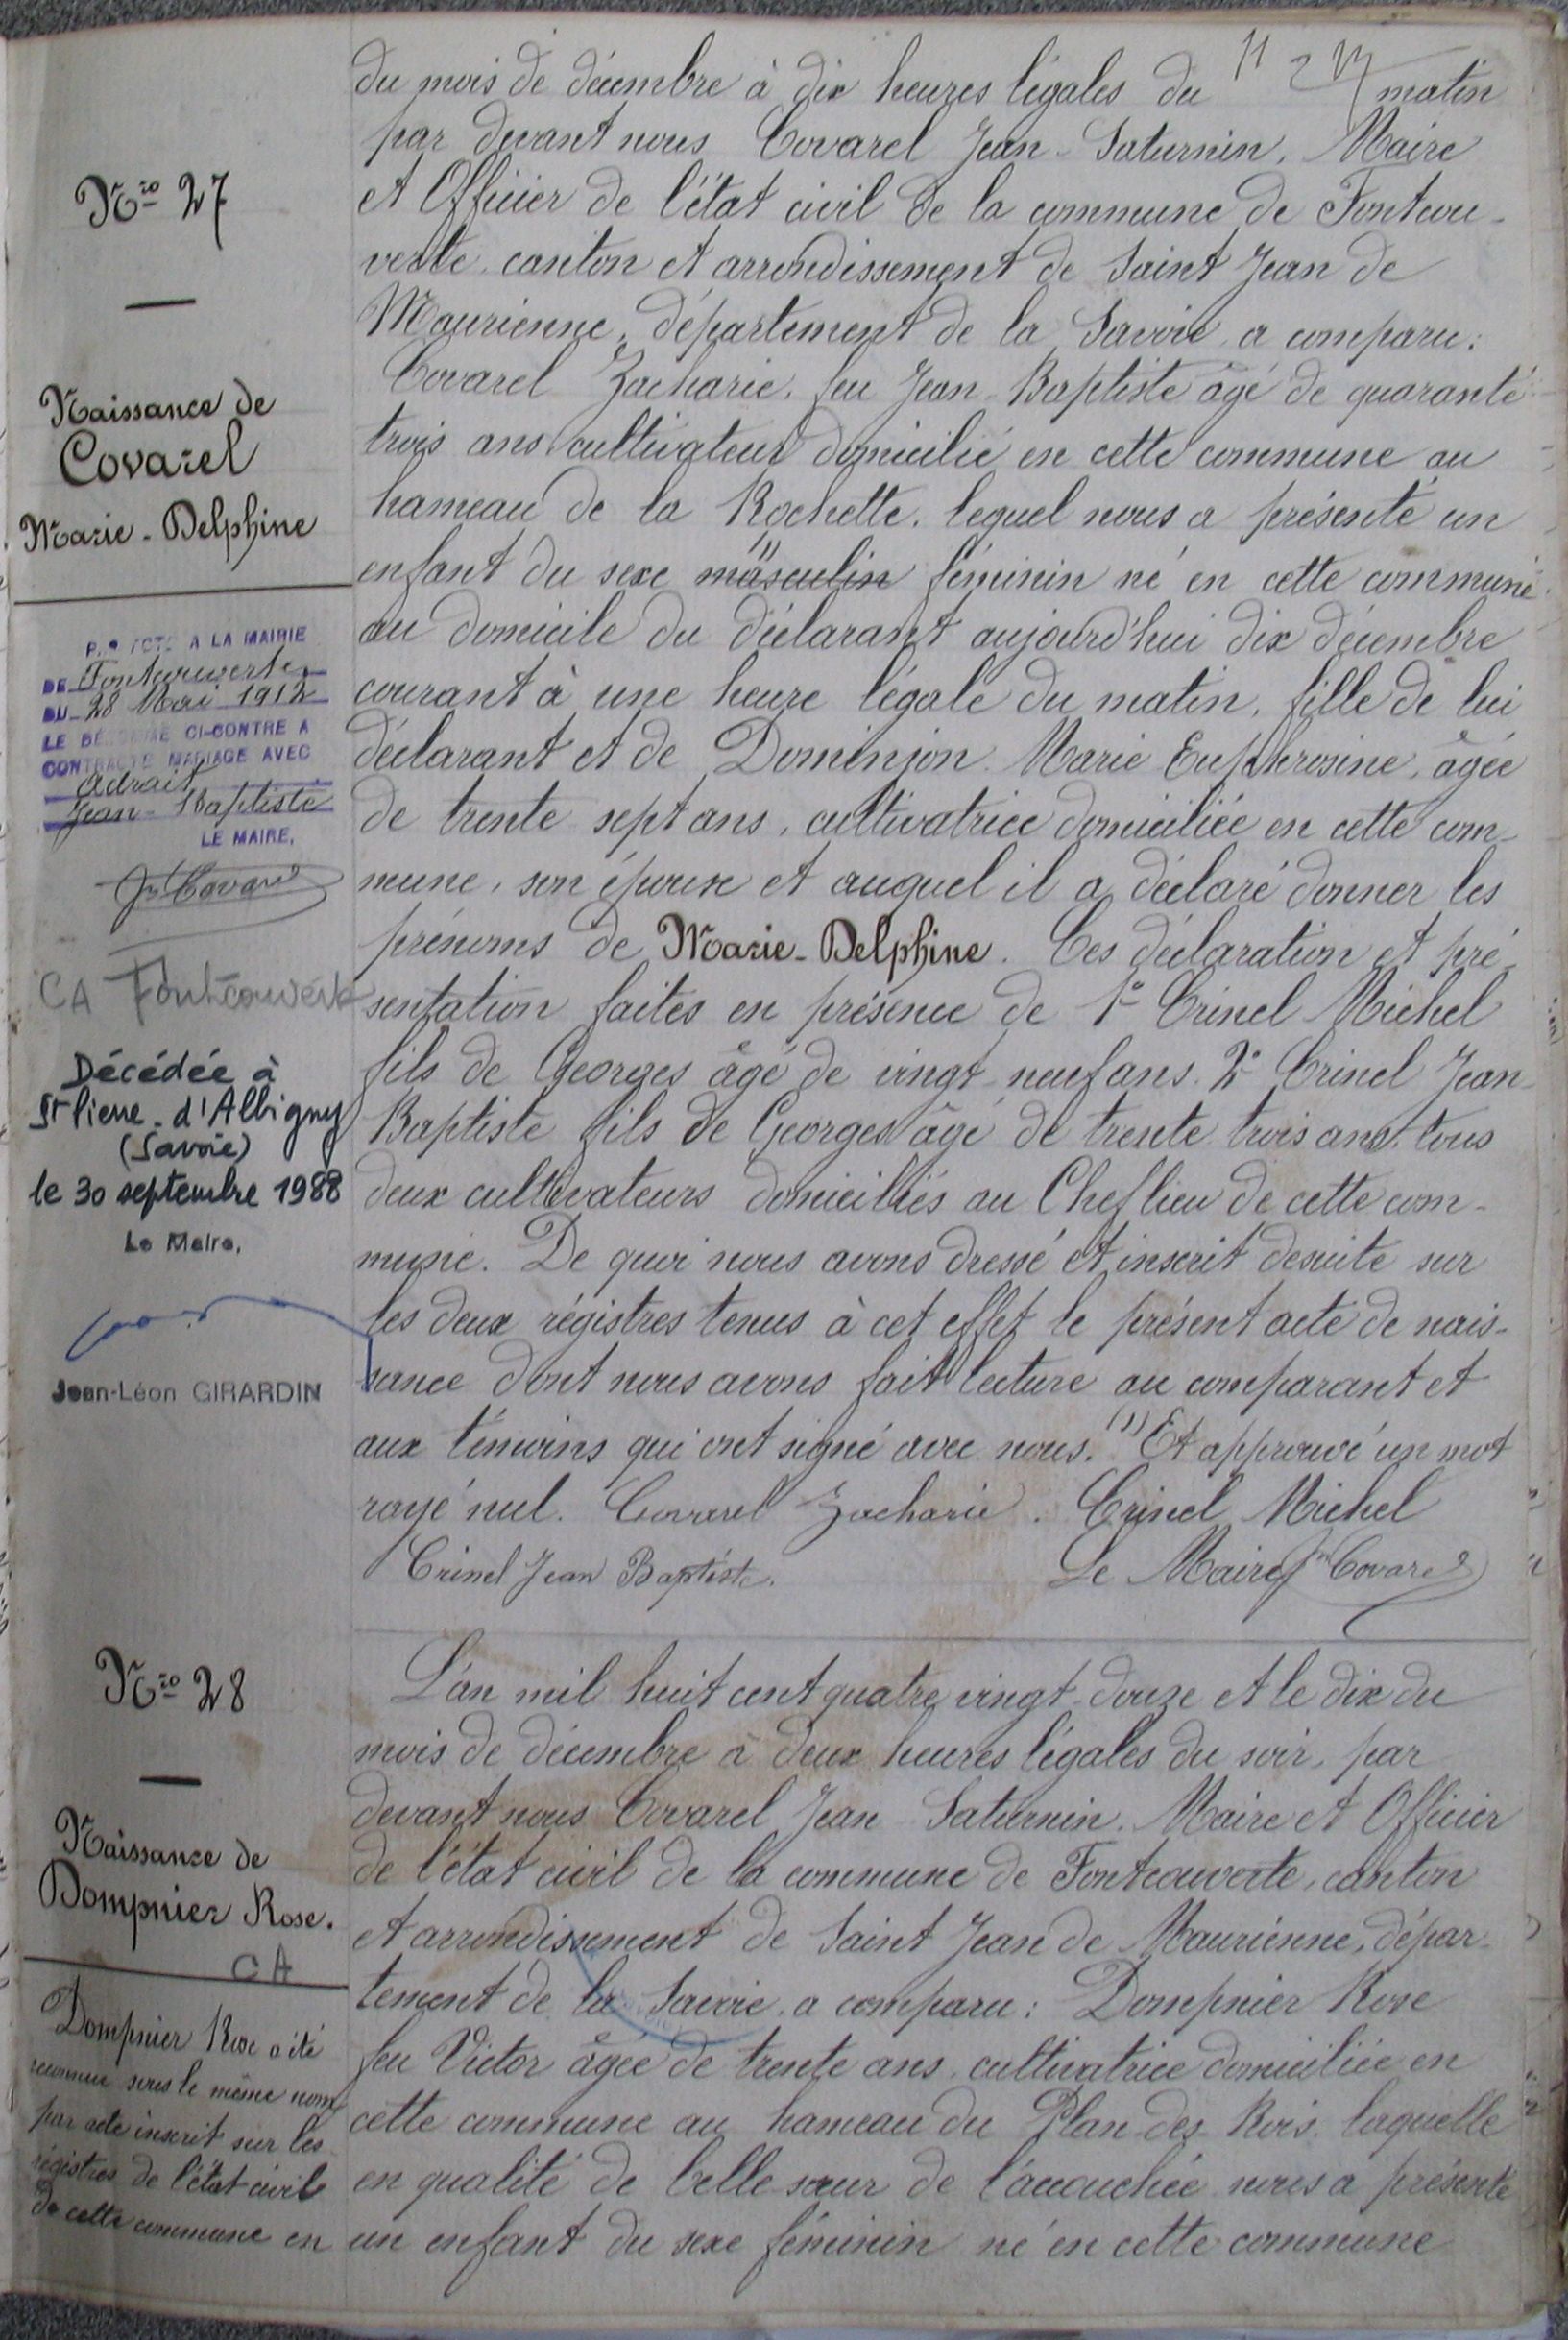 du mois de décembre à dix heures légales du matin
par devant nous Covarel Jean-Saturnin, Maire
et Officier de l'état civil de la commune de Fontcou-
verte, canton et arrondissement de Saint Jean de
Maurienne, département de la Savoie, a comparu:
Covarel Zacharie, feu Jean-Baptiste âgé de quarante
trois ans cultivateur domicilié en cette commune au
hameau de la Rochette, lequel nous a présenté un
enfant du sexe masculin féminin né en cette commune
au domicile du déclarant aujourd'hui dix décembre
courant à une heure légale du matin, fille de lui
déclarant et de Dominjon Marie Euphrosine, âgée
de trente sept ans, cultivatrice domiciliée en cette com-
mune, son épouse et auquel il a déclaré donner les
prénoms de Marie-Delphine. Ces déclaration et pré-
sentation faites en présence de 1° Crinel Michel
fils de Georges âgé de vingt-neuf ans. 2° Crinel Jean-
Baptiste fils de Georges âgé de trente trois ans, tous
deux cultivateurs domiciliés au Chef lieu de cette com-
mune. De quoi nous avons dressé et inscrit desuite sur
les deux régistres tenus à cet effet le présent acte de nais-
sance dont nous avons fait lecture au comparant et
aux témoins qui ont signé avec nous. (1) Et approuvé un mot
rayé nul. Covarel Zacharie. Crinel Michel
Crinel Jean Baptiste. Le Maire Jn Covarel
Nro 27
Naissance de
Covarel
Marie-Delphine
A LA MAIRIE
DE Fontcouverte
DU 28 Mai 1912
LE DÉNOMMÉ CI-CONTRE A
CONTRACTÉ MARIAGE AVEC
Adrait
Jean-Baptiste
LE MAIRE,
Jn Covarel
CA Fontcouverte
Décédée à
St Pierre-d'Albigny
(Savoie)
le 30 septembre 1988
Le Maire,
Jean-Léon GIRARDIN
Nro 28
Naissance de
Dompnier Rose.
CA
Dompnier Rose a été
reconnue sous le même nom
par acte inscrit sur les
régistres de l'état civil
de cette commune en
L'an mil huit cent quatre vingt-douze et le dix du
mois de décembre à deux heures légales du soir, par
devant nous Covarel Jean Saturnin, Maire et Officier
de l'état civil de la commune de Fontcouverte, canton
et arrondissement de Saint Jean de Maurienne, dépar-
tement de la Savoie, a comparu: Dompnier Rose
feu Victor âgée de trente ans, cultivatrice domiciliée en
cette commune au hameau du Plan-des-Rois, laquelle
en qualité de belle-sœur de l'accouchée nous a présenté
un enfant du sexe féminin né en cette commune